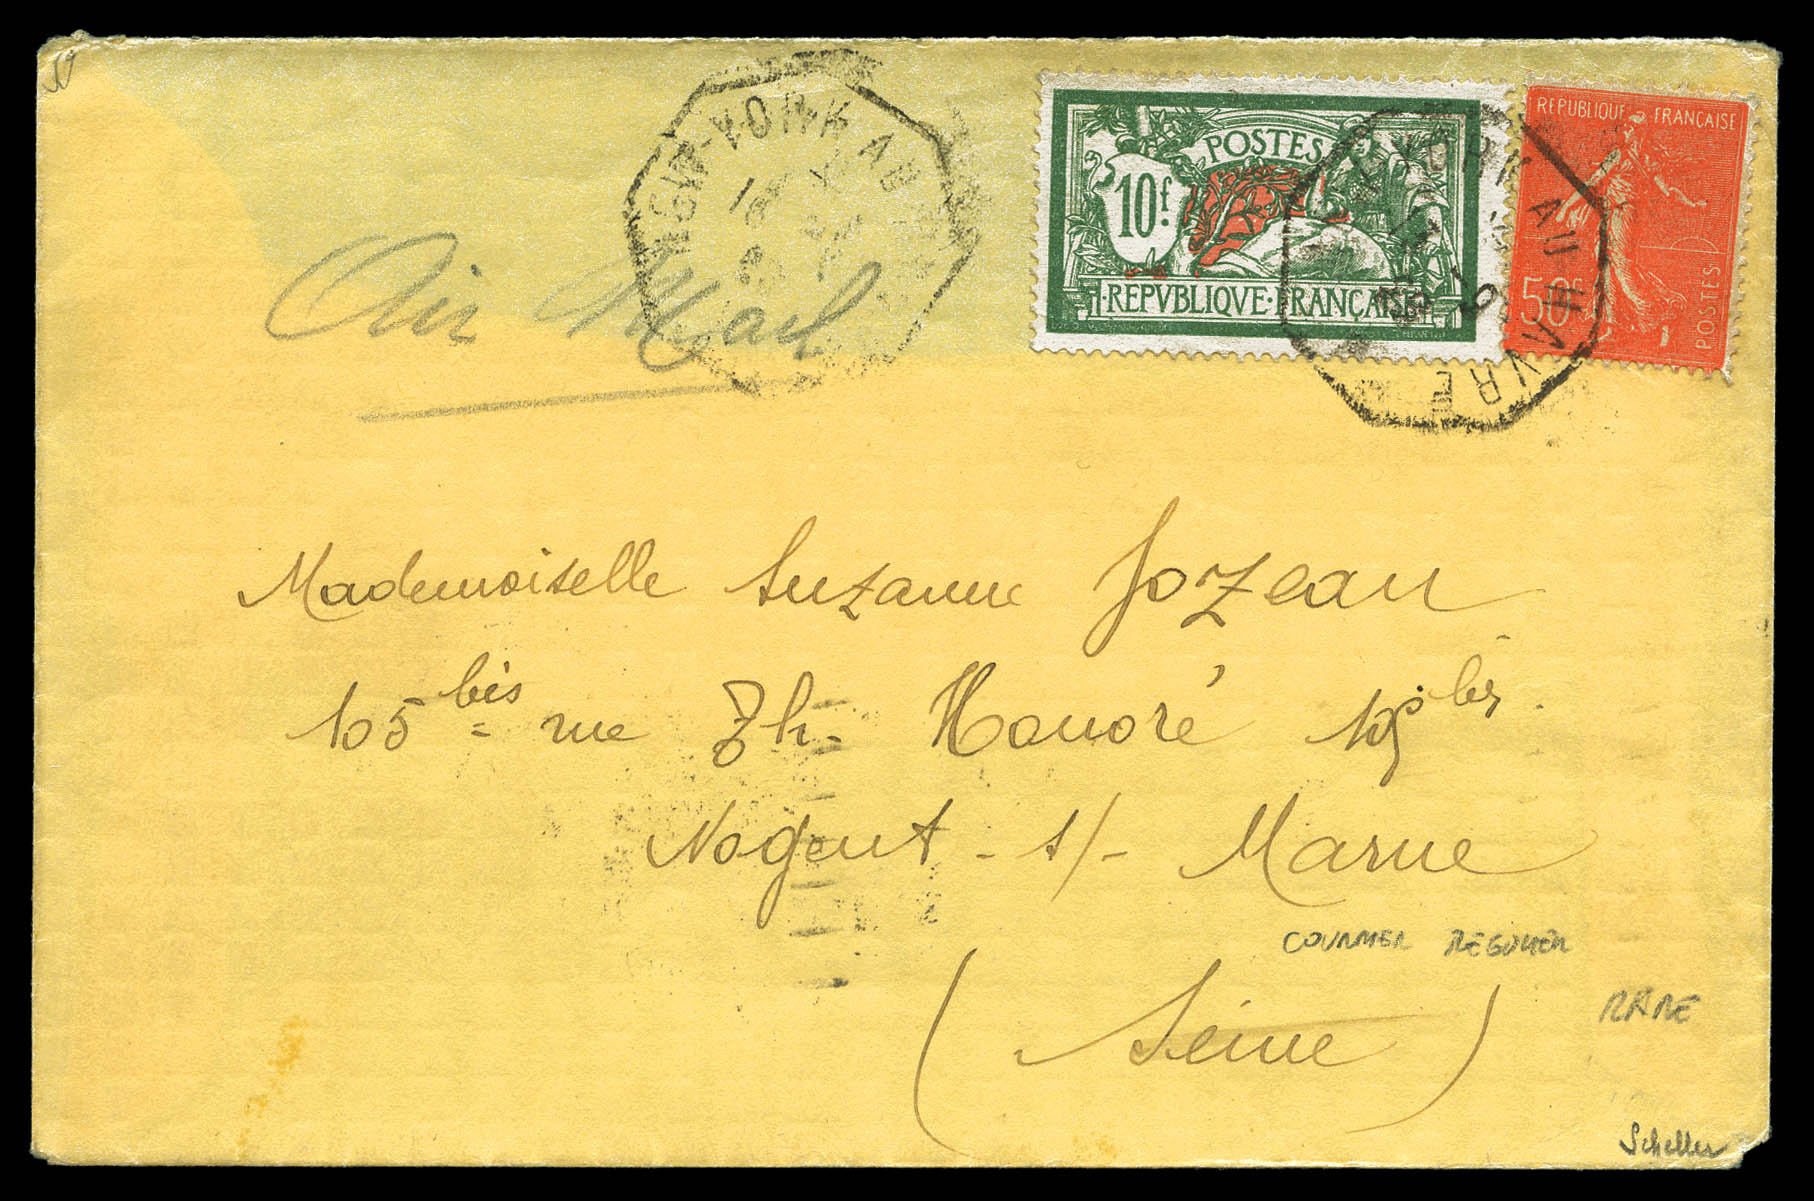 NEW-YORK AU HAVRE
POSTES
10f.
REPVBLIQVE·FRANÇAISE
YORK AU HAVRE
REPUBLIQUE FRANÇAISE
50c
POSTES
Air Mail
Mademoiselle Suzanne Jozeau
105 bis rue Th. Honoré 105 bis.
Nogent - s/- Marne
COURRIER REGULIER
(Seine)
RARE
Scheller